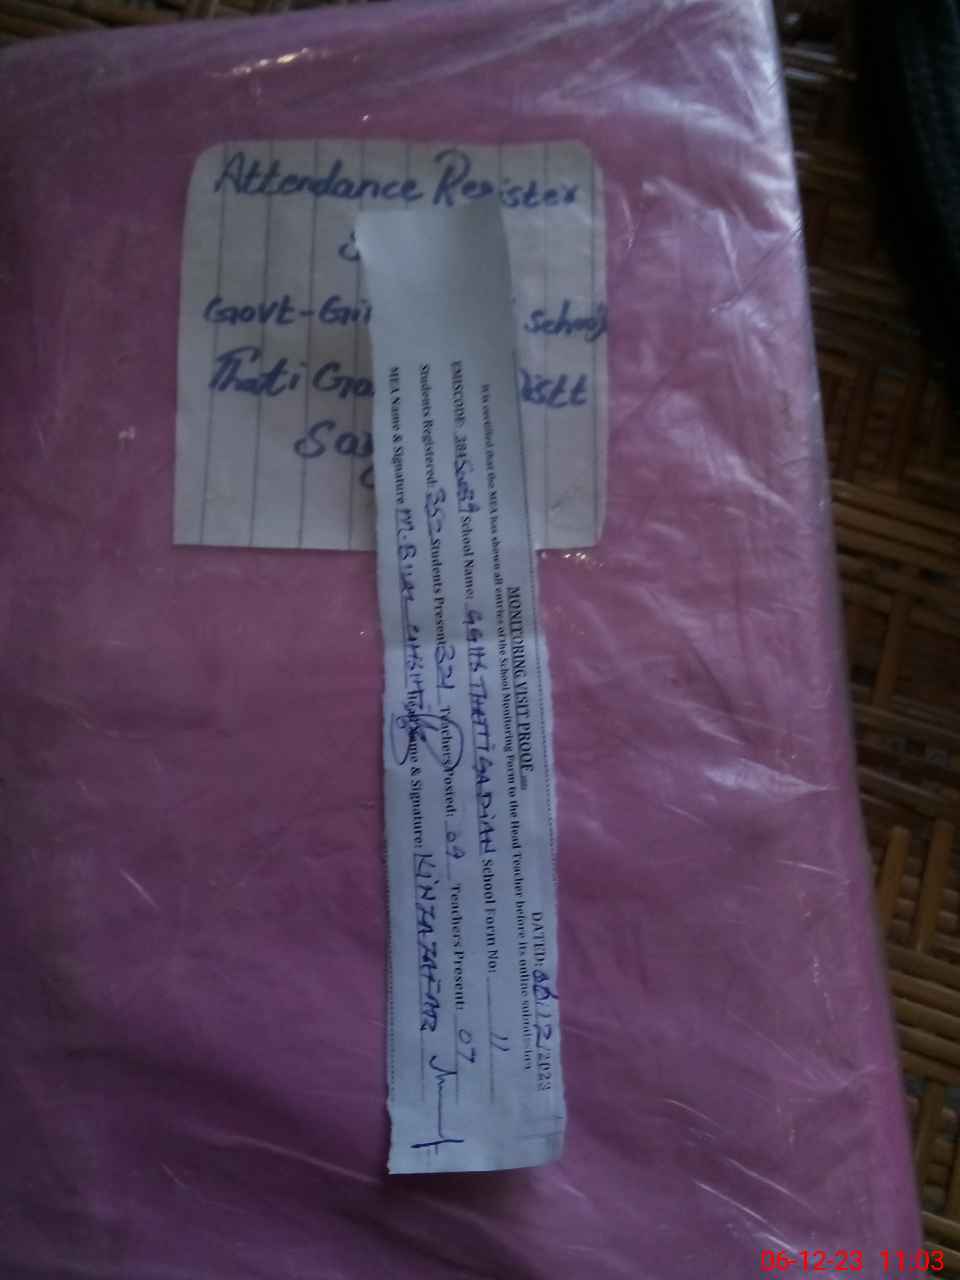 Attendance Register
Govt- School
Thati Distt
MONITORING VISIT PROOF
DATED: 06/12/2023
It is certified that the MEA has shown all entries of the School Monitoring Form to the Head Teacher before its online submission
EMISCODE: School Name: GGHS THATTI GADIAN School Form No: 11
Students Registered: 352 Students Present: 321 Teachers Posted: 09 Teachers Present: 07
MEA Name & Signature M. BILAL Name & Signature: KINZA ZAFAR
06-12-23 11:03